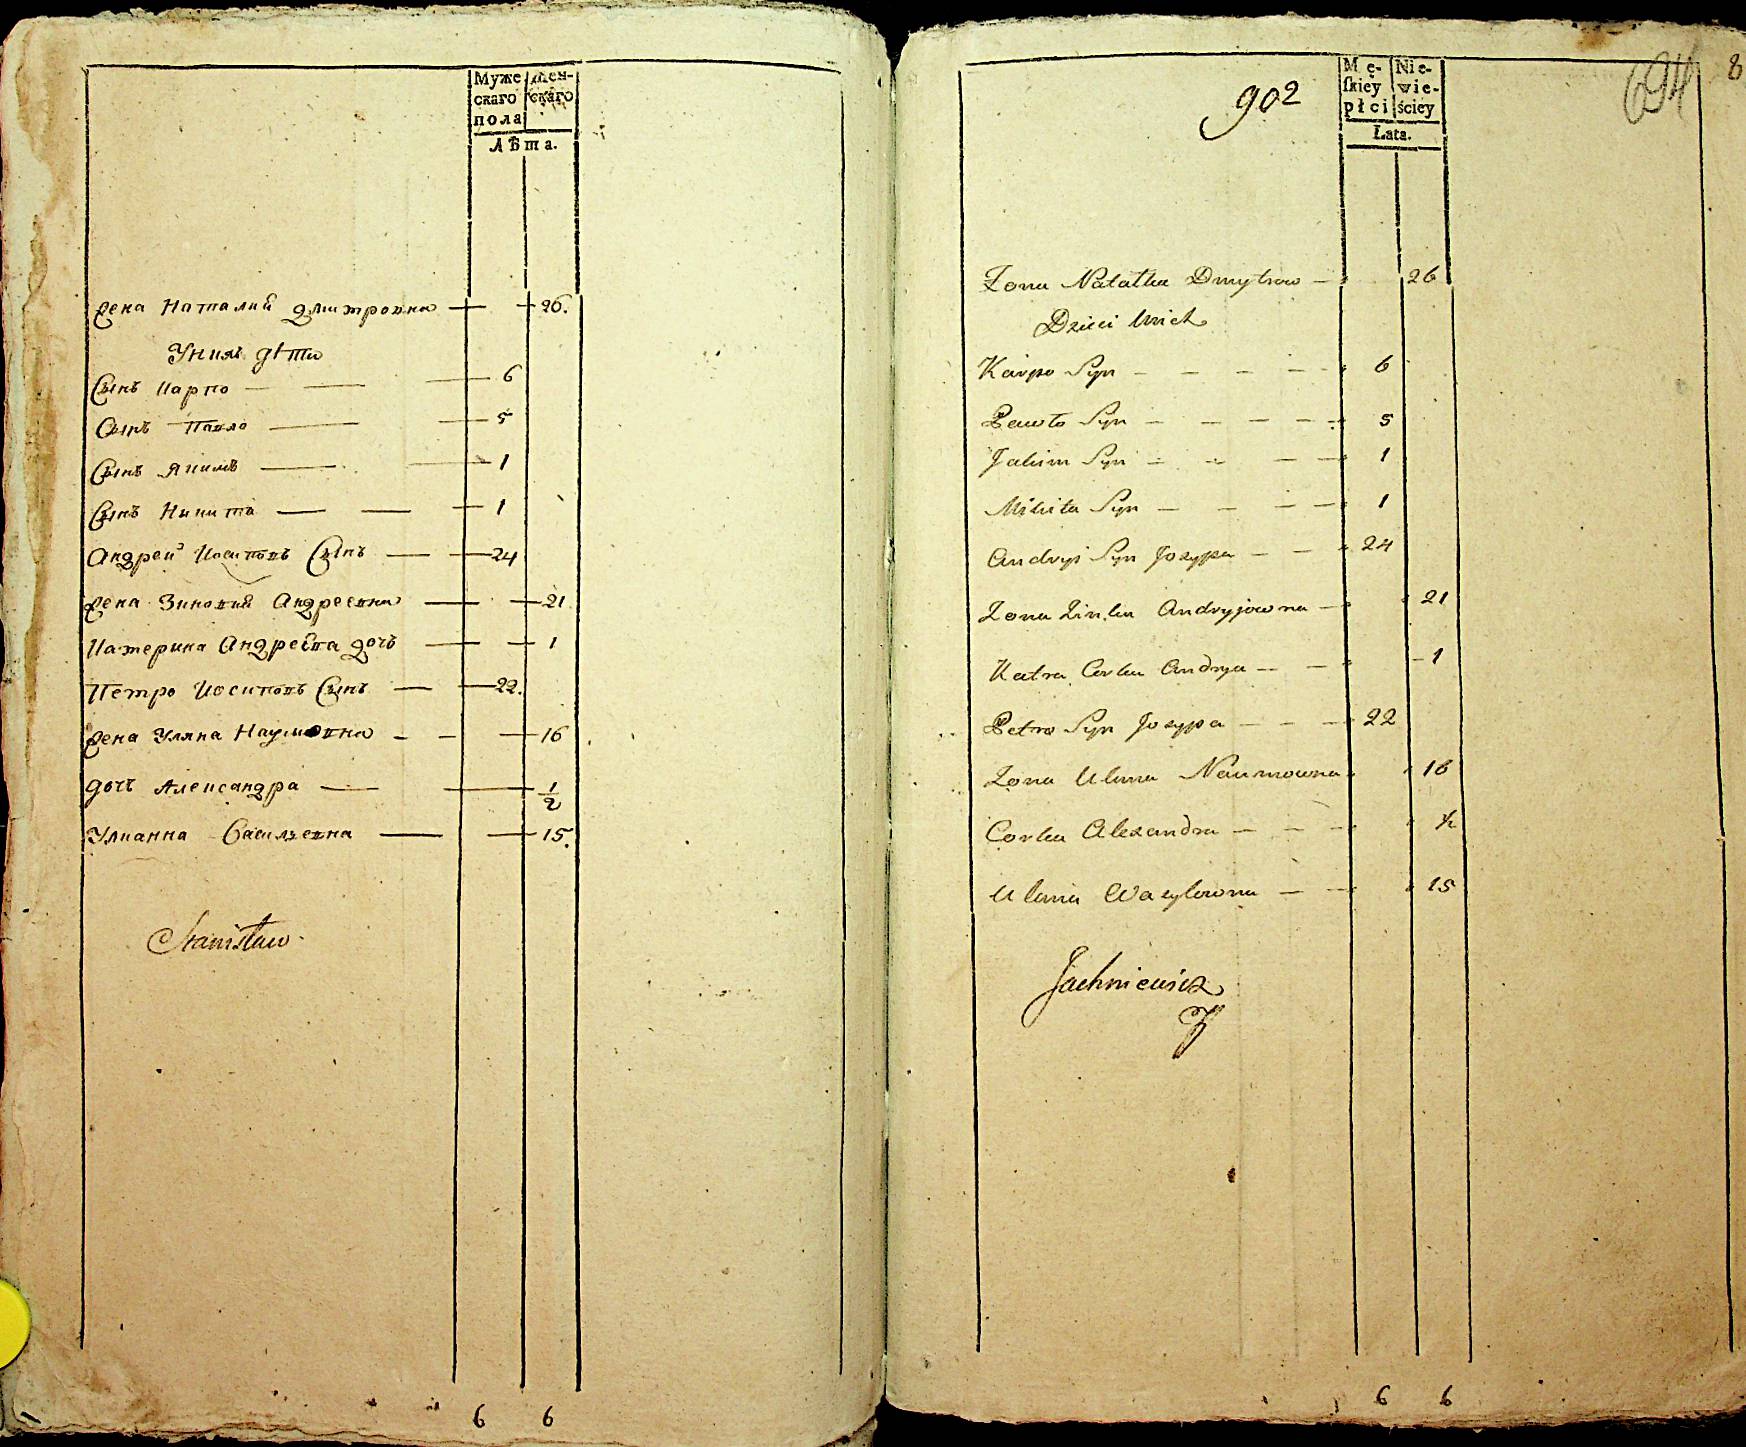 Муже Жен-
скаго скаго
пола
Лѣта.
Жена Наталия Дмитровна 26.
У нихъ дѣти
Сынъ Карпо 6
Сынъ Павло 5
Сынъ Якимъ 1
Сынъ Никита 1
Андрей Иосиповъ Сынъ 24
Жена Зиновия Андреевна 21
Катерина Андреева дочь 1
Петро Иосиповъ Сынъ 22.
Жена Уляна Наумовна 16
дочь Александра 1/2
Улианна Васильевна 15.
Stanisław
6 6
902
694
8
Mę- Nie-
ſkiey wie-
płci ściey
Lata.
Zona Natalka Dmytrow 26
Dzieci Unich
Karpo Syn 6
Pawło Syn 5
Jakim Syn 1
Mikita Syn 1
Andryi Syn Jozypa 24
Zona Zinka Andryjowna 21
Katra Corka Andryja 1
Petro Syn Jozypa 22
Zona Ulana Naumowna 16
Corka Alexandra 1/2
Ulana Wazylowna 15
Jachniewicz
6 6